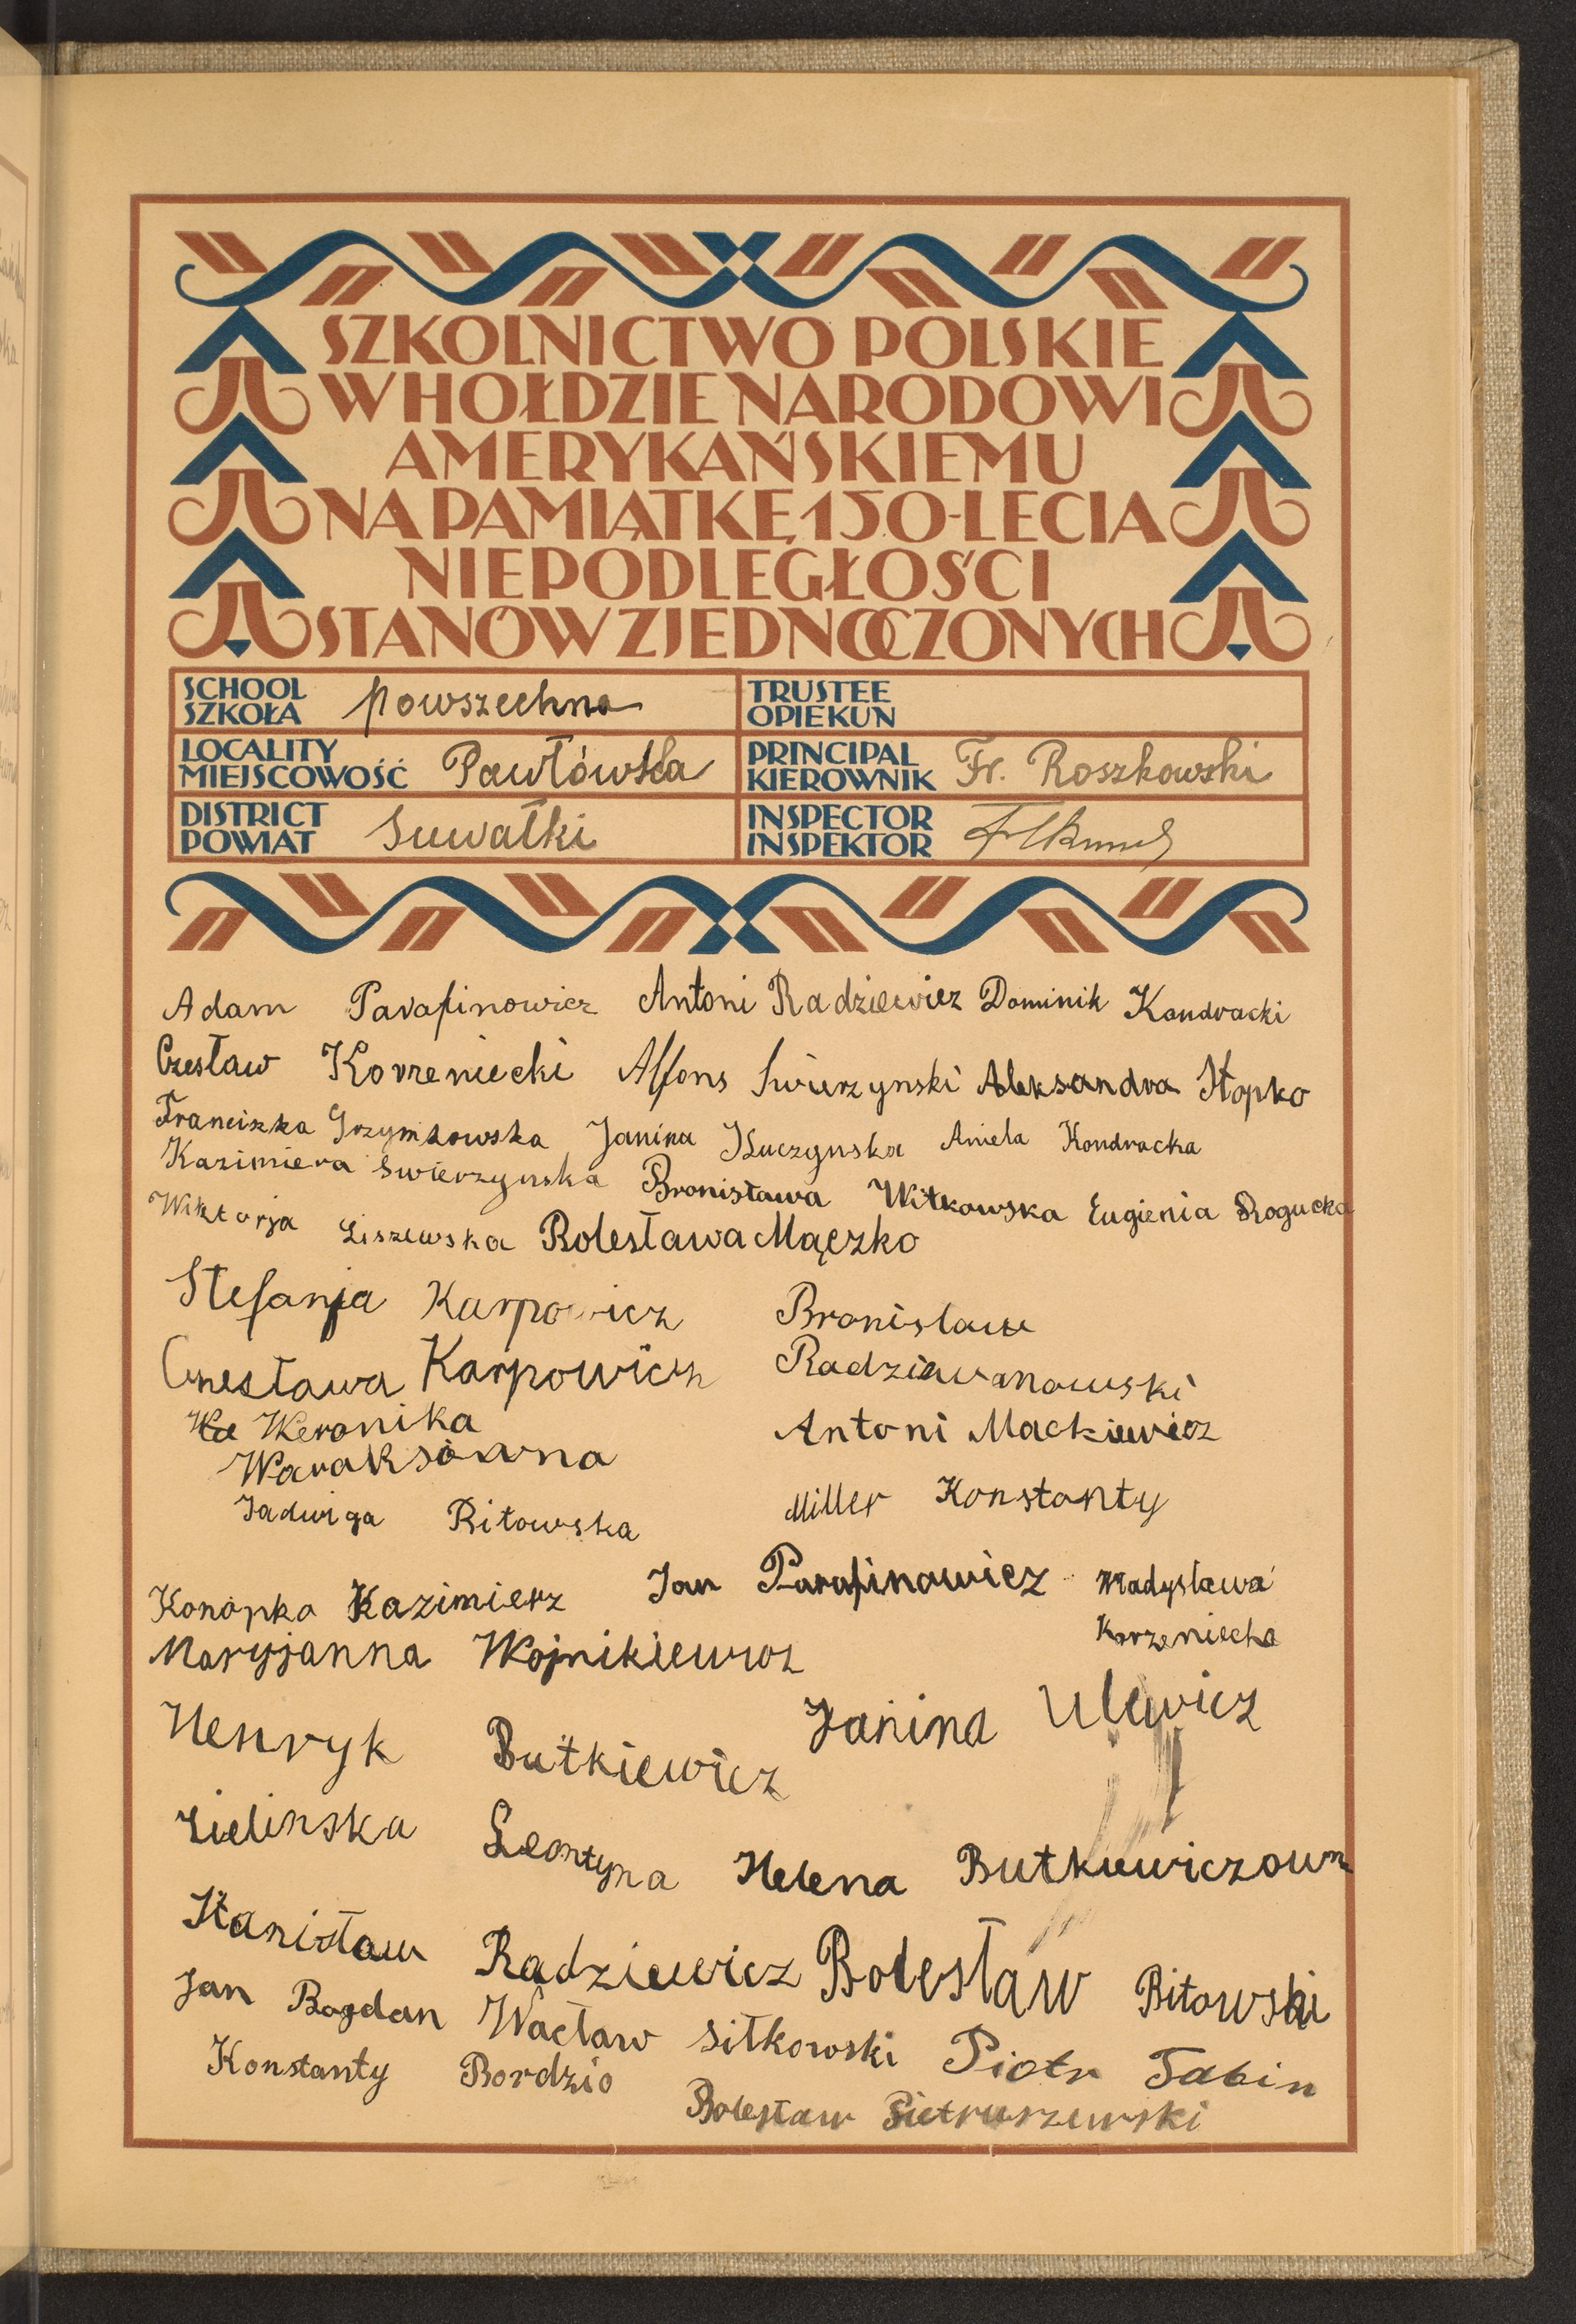 SZKOLNICTWO POLSKIE
W HOŁDZIE NARODOWI
AMERYKAŃSKIEMU
NA PAMIĄTKĘ 150-LECIA
NIEPODLEGŁOŚCI
STANÓW ZJEDNOCZONYCH
SCHOOL
SZKOŁA powszechna
TRUSTEE
OPIEKUN
LOCALITY
MIEJSCOWOŚĆ Pawłówka
PRINCIPAL
KIEROWNIK Fr. Roszkowski
DISTRICT
POWIAT Suwałki
INSPECTOR
INSPEKTOR
Adam Parafinowicz Antoni Radziewicz Dominik Kondracki
Czesław Korzeniecki Alfons Swierzynski Aleksandra Słopko
Franciszka Grzymkowska Janina Kuczynska Aniela Kondracka
Kazimiera Swierzynska Bronisława Witkowska Eugienia Rogucka
Wiktorja Liszewska Bolesława Mączko
Stefanja Karpowicz Bronislaw
Czesława Karpowicz Radziwanowski
We Weronika Antoni Mackiewicz
Waraksówna
Jadwiga Bitowska Miller Konstanty
Konopko Kazimierz Jan Parafinowicz Władysława
Maryjanna Wojnikiewicz Korzeniecka
Henryk Butkiewicz Janina Ulewicz
Zielinska Leontyna Helena Butkiewiczown
Stanisław Radziewicz Bolesław Bitowski
Jan Bogdan Wacław Sitkowski Piotr Tabin
Konstanty Bordzio
Bolesław Pietruszewski